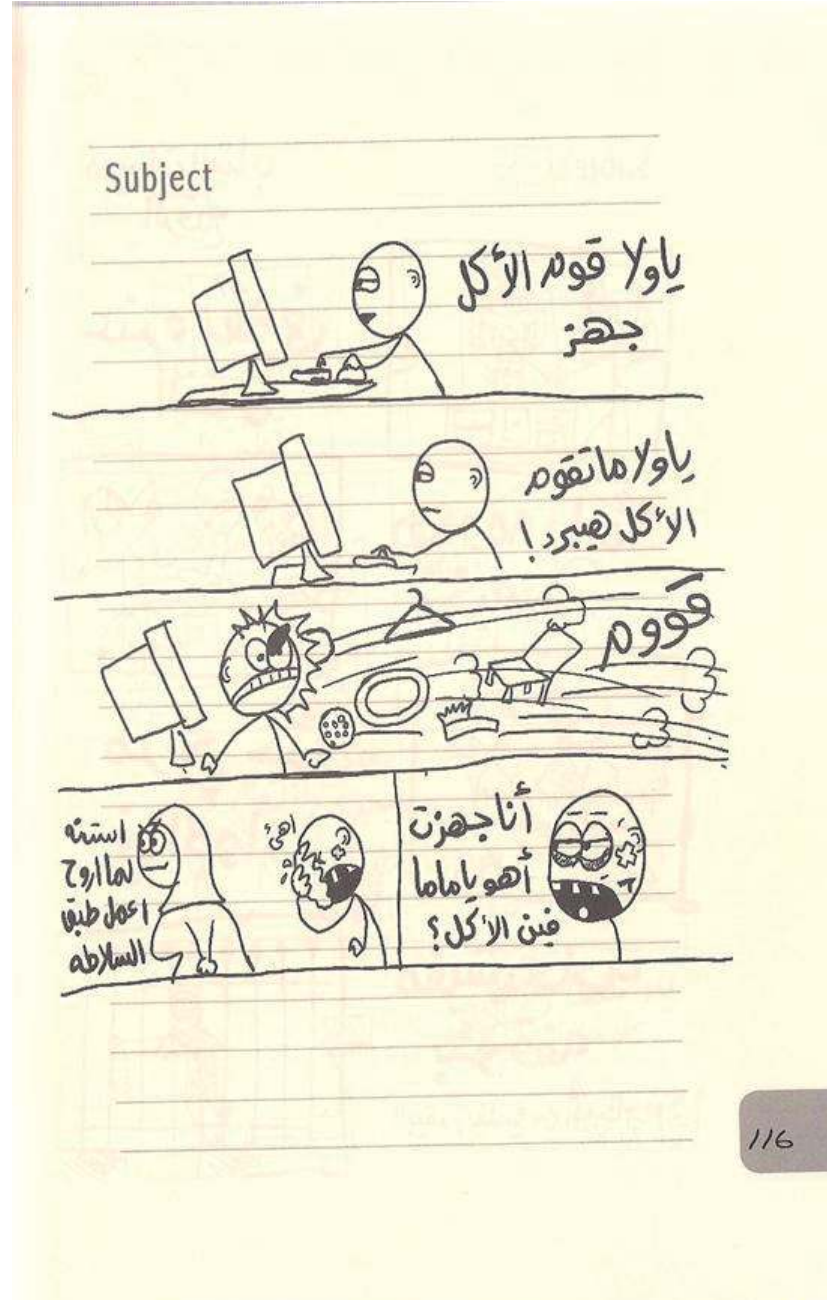 Subject
ياولا قوم الأكل
جهز
ياولا ماتقوم
الأكل هيبرد!
قووم
أنا جهزت
أهو ياماما
فين الأكل؟
اهئ
استنه
لما اروح
اعمل طبق
السلاطه
116